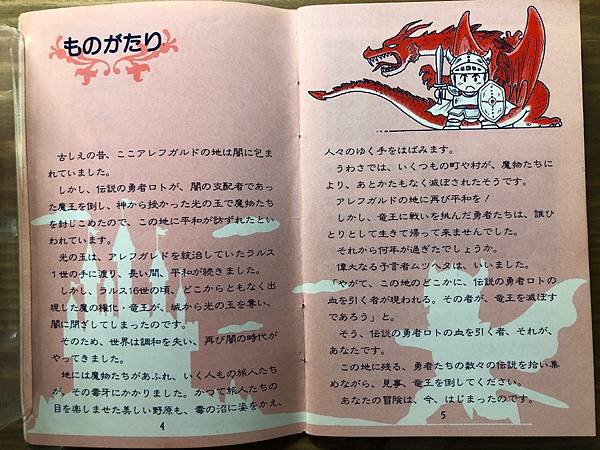 ものがたり
古しえの昔、ここアレフガルドの地は闇に包ま
れていました。
しかし、伝説の勇者ロトが、闇の支配者であっ
た魔王を倒し、神から授かった光の玉で魔物たち
を封じこめたので、この地に平和が訪ずれたとい
われています。
光の玉は、アレフガルドを統治していたラルス
1世の手に渡り、長い間、平和が続きました。
しかし、ラルス16世の頃、どこからともなく出
現した魔の権化・竜王が、城から光の玉を奪い、
闇に閉ざしてしまったのです。
そのため、世界は調和を失い、再び闇の時代が
やってきました。
地には魔物たちがあふれ、いく人もの旅人たち
が、その毒牙にかかりました。かつて旅人たちの
目を楽しませた美しい野原も、毒の沼に姿をかえ、
4
人々のゆく手をはばみます。
うわさでは、いくつもの町や村が、魔物たちに
より、あとかたもなく滅ぼされたそうです。
アレフガルドの地に再び平和を!
しかし、竜王に戦いを挑んだ勇者たちは、誰ひ
とりとして生きて帰って来ませんでした。
それから何年が過ぎたでしょうか。
偉大なる予言者ムツヘタは、いいました。
「やがて、この地のどこかに、伝説の勇者ロトの
血を引く者が現われる。その者が、竜王を滅ぼす
であろう」と。
そう、伝説の勇者ロトの血を引く者、それが、
あなたです。
この地に残る、勇者たちの数々の伝説を拾い集
めながら、見事、竜王を倒してください。
あなたの冒険は、今、はじまったのです。
5